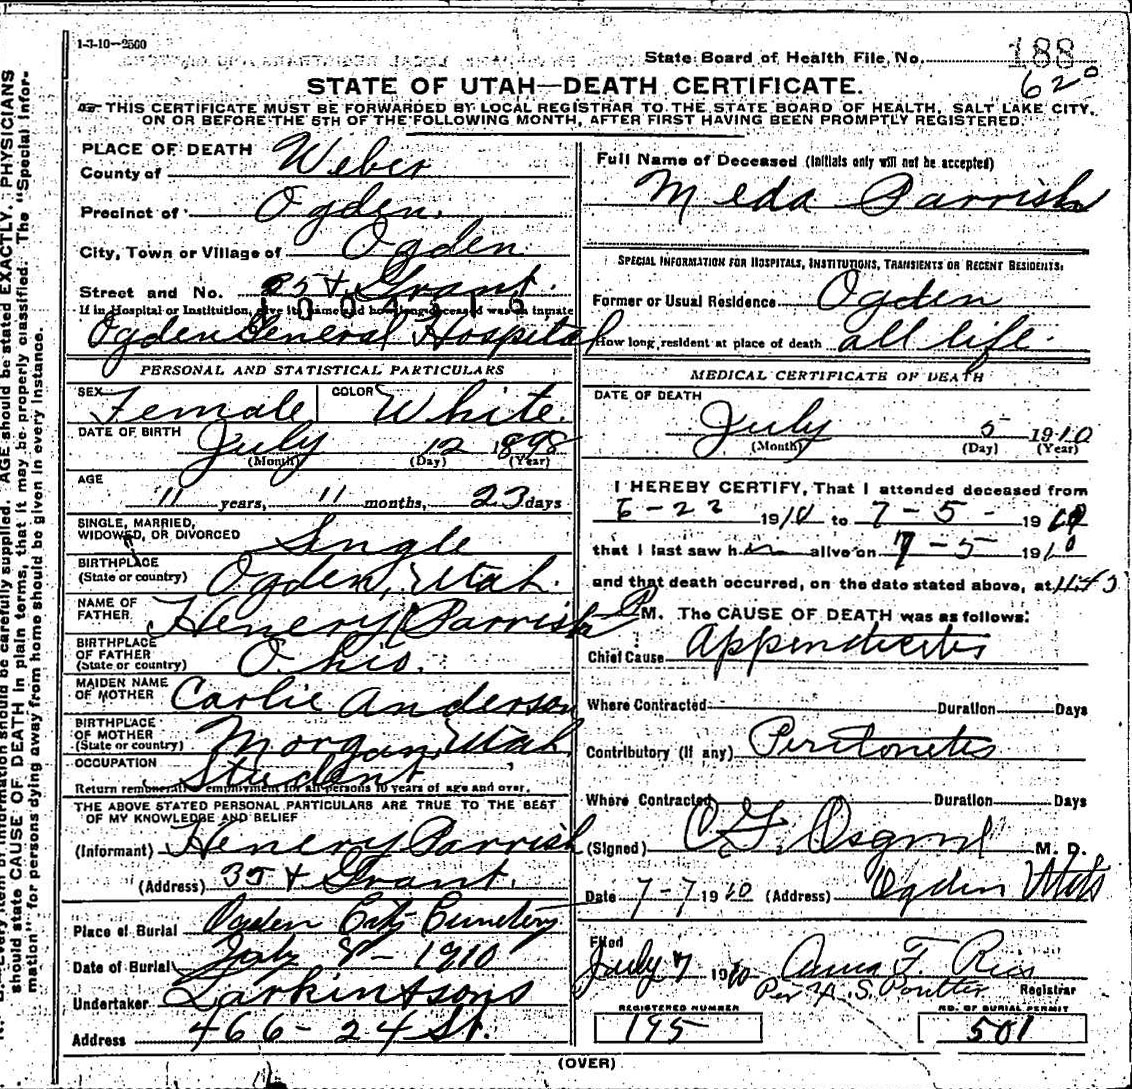 1-3-10-2500
State Board of Health File No. 188
620
STATE OF UTAH—DEATH CERTIFICATE.
THIS CERTIFICATE MUST BE FORWARDED BY LOCAL REGISTRAR TO THE STATE BOARD OF HEALTH, SALT LAKE CITY,
ON OR BEFORE THE 5TH OF THE FOLLOWING MONTH, AFTER FIRST HAVING BEEN PROMPTLY REGISTERED.
PLACE OF DEATH
County of Weber
Precinct of Ogden.
City, Town or Village of Ogden
Street and No. 35 & Grant.
If in Hospital or Institution, give its name and how long deceased was an inmate
Ogden General Hospital
PERSONAL AND STATISTICAL PARTICULARS
SEX Female COLOR White.
DATE OF BIRTH July 12 1898
(Month) (Day) (Year)
AGE
11 years, 11 months, 23 days
SINGLE, MARRIED,
WIDOWED, OR DIVORCED Single
BIRTHPLACE
(State or country) Ogden, Utah.
NAME OF
FATHER Henery Parrish
BIRTHPLACE
OF FATHER
(State or country) Ohio.
MAIDEN NAME
OF MOTHER Carlie Anderson
BIRTHPLACE
OF MOTHER
(State or country) Morgan, Utah
OCCUPATION
Student
Return remunerative employment for all persons 10 years of age and over.
THE ABOVE STATED PERSONAL PARTICULARS ARE TRUE TO THE BEST
OF MY KNOWLEDGE AND BELIEF
(Informant) Henery Parrish
(Address) 35 & Grant.
Place of Burial Ogden City Cemetery
Date of Burial July 8 - 1910
Undertaker Larkin & Sons
Address 466 - 24 St.
Full Name of Deceased (Initials only will not be accepted)
Meda Parrish
SPECIAL INFORMATION FOR HOSPITALS, INSTITUTIONS, TRANSIENTS OR RECENT RESIDENTS:
Former or Usual Residence Ogden
How long resident at place of death all life.
MEDICAL CERTIFICATE OF DEATH
DATE OF DEATH
July 5 1910
(Month) (Day) (Year)
I HEREBY CERTIFY, That I attended deceased from
6-22 1910 to 7-5- 1910
that I last saw her alive on 7-5 1910
and that death occurred, on the date stated above, at 11:45
P M. The CAUSE OF DEATH was as follows:
Chief Cause Appendicites
Where Contracted Duration Days
Contributory (if any) Peritonetis
Where Contracted Duration Days
(Signed) C. F. Osgood M. D.
Date 7-7 1910 (Address) Ogden Utah
Filed
July 7 1910 Anna F Rice
Per H. S. Poulter Registrar
REGISTERED NUMBER
195
NO. OF BURIAL PERMIT
501
(OVER)
Every item of information should be carefully supplied. AGE should be stated EXACTLY. PHYSICIANS
should state CAUSE OF DEATH in plain terms, that it may be properly classified. The "Special Infor-
mation" for persons dying away from home should be given in every instance.